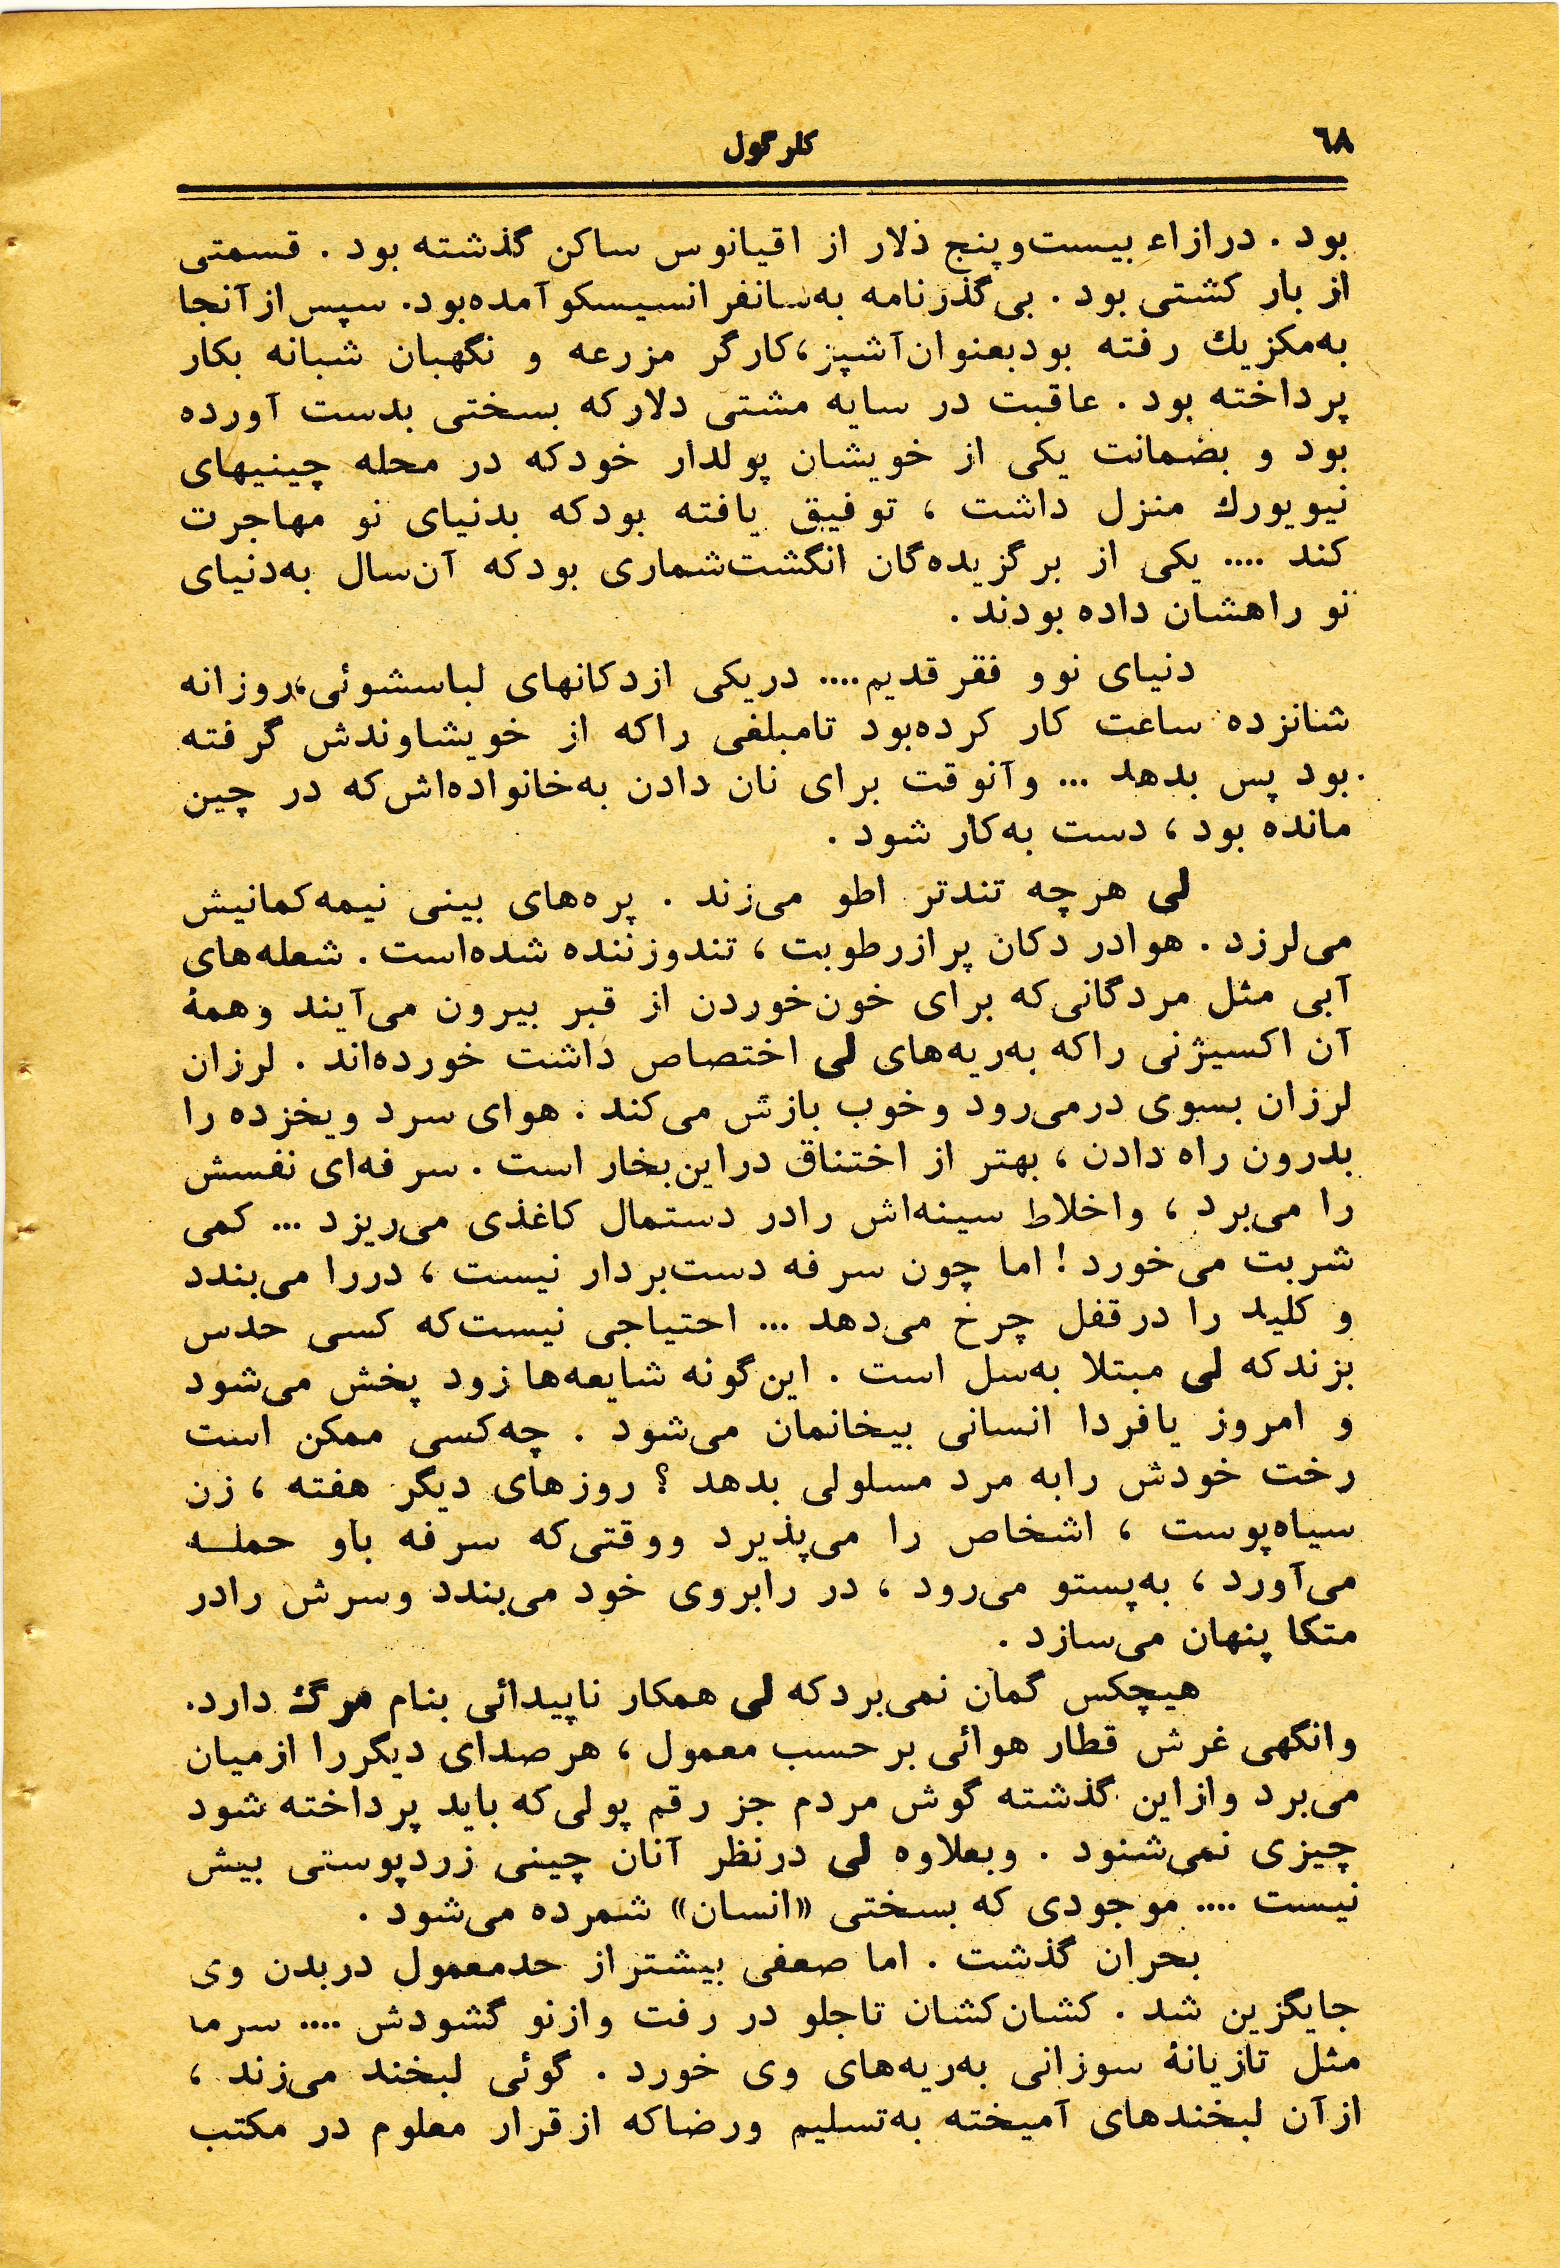 ۶۸
کلرگول
بود . درازاء بیست‌وپنج ذلار از اقیانوس ساکن گذشته بود . قسمتی
از بار کشتی بود . بی‌گذرنامه به‌سانفرانسیسکو آمده‌بود. سپس ازآنجا
به‌مکزیك رفته بودبعنوان‌آشپز،کارگر مزرعه و نگهبان شبانه بکار
پرداخته بود . عاقبت در سایه مشتی دلارکه بسختی بدست آورده
بود و بضمانت یکی از خویشان پولدار خودکه در محله چینیهای
نیویورك منزل داشت ، توفیق یافته بودکه بدنیای نو مهاجرت
کند .... یکی از برگزیده‌گان انگشت‌شماری بودکه آن‌سال به‌دنیای
نو راهشان داده بودند .
دنیای نوو فقر قدیم.... دریکی ازدکانهای لباسشوئی،روزانه
شانزده ساعت کار کرده‌بود تامبلغی راکه از خویشاوندش گرفته
بود پس بدهد ... وآنوقت برای نان دادن به‌خانواده‌اش‌که در چین
مانده بود ، دست به‌کار شود .
لی هرچه تندتر اطو می‌زند . پره‌های بینی نیمه‌کمانیش
می‌لرزد . هوادر دکان پرازرطوبت ، تندوزننده شده‌است . شعله‌های
آبی مثل مردگانی‌که برای خون‌خوردن از قبر بیرون می‌آیند وهمهٔ
آن اکسیژنی راکه به‌ریه‌های لی اختصاص داشت خورده‌اند . لرزان
لرزان بسوی درمی‌رود وخوب بازش می‌کند . هوای سرد ویخزده را
بدرون راه دادن ، بهتر از اختناق دراین‌بخار است . سرفه‌ای نفسش
را می‌برد ، واخلاط سینه‌اش رادر دستمال کاغذی می‌ریزد ... کمی
شربت می‌خورد ! اما چون سرفه دست‌بردار نیست ، دررا می‌بندد
و کلید را درقفل چرخ می‌دهد ... احتیاجی نیست‌که کسی حدس
بزندکه لی مبتلا به‌سل است . این‌گونه شایعه‌ها زود پخش می‌شود
و امروز یافردا انسانی بیخانمان می‌شود . چه‌کسی ممکن است
رخت خودش رابه مرد مسلولی بدهد ؟ روزهای دیگر هفته ، زن
سیاه‌پوست ، اشخاص را می‌پذیرد ووقتی‌که سرفه باو حمله
می‌آورد ، به‌پستو می‌رود ، در رابروی خود می‌بندد وسرش رادر
متکا پنهان می‌سازد .
هیچکس گمان نمی‌بردکه لی همکار ناپیدائی بنام مرگ دارد.
وانگهی غرش قطار هوائی برحسب معمول ، هرصدای دیگررا ازمیان
می‌برد وازاین گذشته گوش مردم جز رقم پولی‌که باید پرداخته شود
چیزی نمی‌شنود . وبعلاوه لی درنظر آنان چینی زردپوستی بیش
نیست .... موجودی که بسختی «انسان» شمرده می‌شود .
بحران گذشت . اما صعفی بیشتراز حدمعمول دربدن وی
جایگزین شد . کشان‌کشان تاجلو در رفت وازنو گشودش .... سرما
مثل تازیانهٔ سوزانی به‌ریه‌های وی خورد . گوئی لبخند می‌زند ،
ازآن لبخندهای آمیخته به‌تسلیم ورضاکه ازقرار معلوم در مکتب